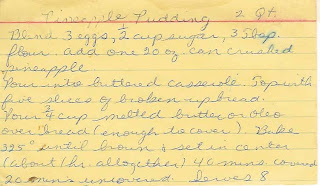 Pineapple Pudding 2 Qt.
Blend 3 eggs, 1/2 cup sugar, 3 Tbsp.
flour. add one 20 oz. can crushed
pineapple
Pour into buttered casserole. Top with
five slices of broken up bread.
Pour 3/4 cup melted butter or oleo
over bread (enough to cover) Bake
325° until brown & set in center
(about 1 hr. altogether) 40 mins. covered
20 min's uncovered. Serves 8